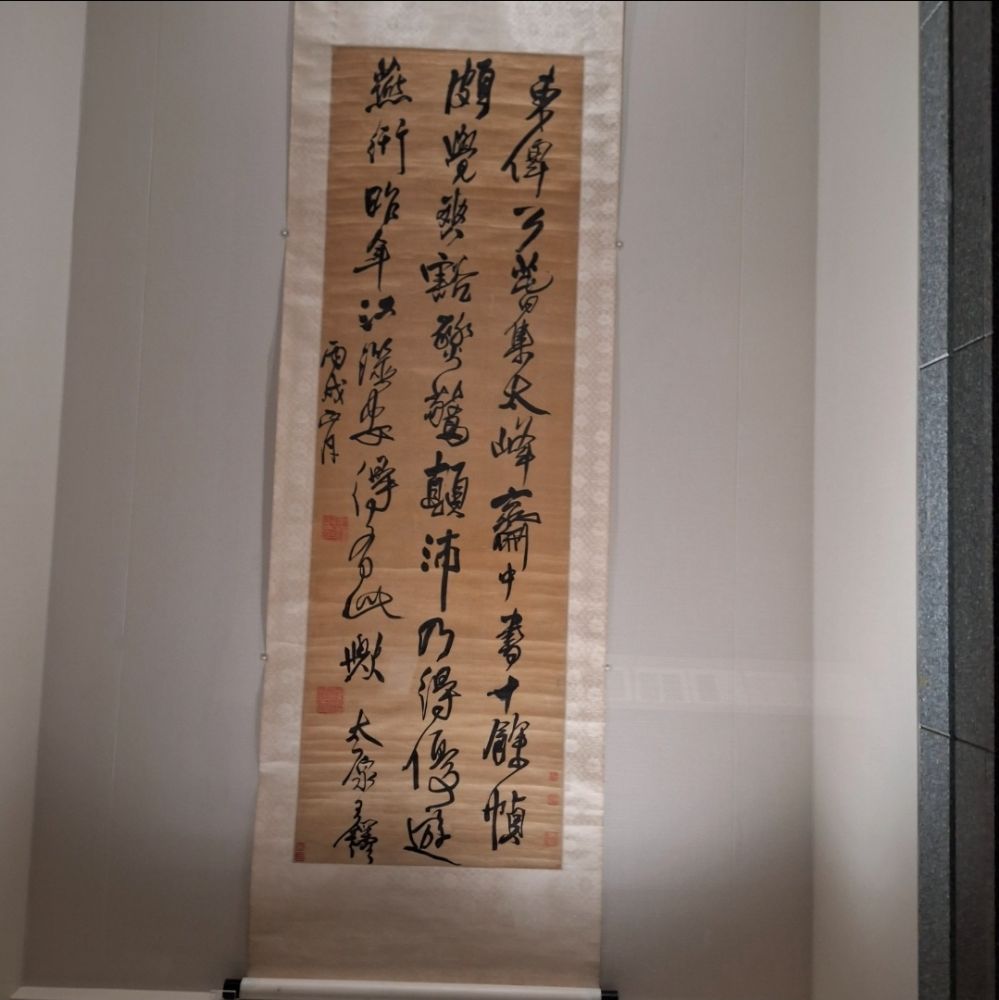 東俾公舊集太峰齋中書十餘幀
頗覺爽豁驚顛沛乃得優遊
燕衎昨年江深安得有此歟 太原王鐸
丙戌二月